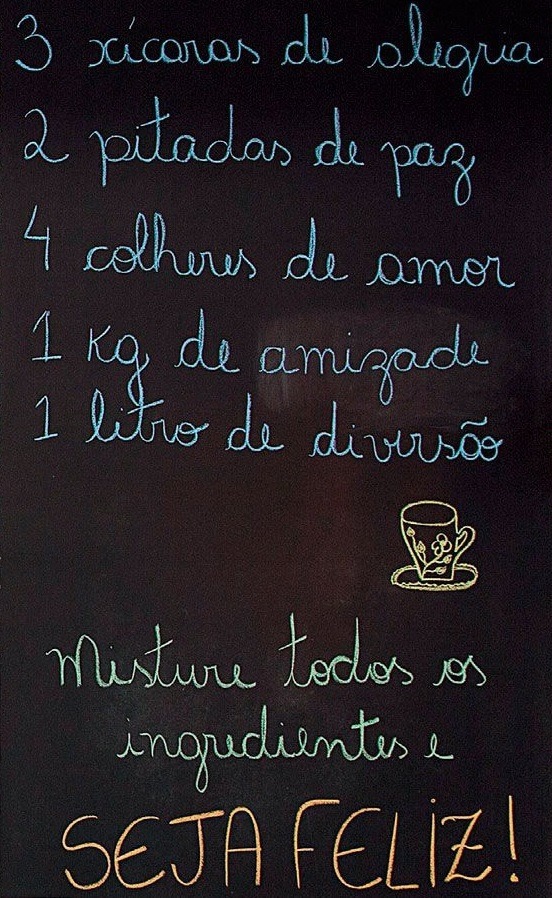 3 xícaras de alegria
2 pitadas de paz
4 colheres de amor
1 Kg de amizade
1 litro de diversão
Misture todos os
ingredientes e
SEJA FELIZ!